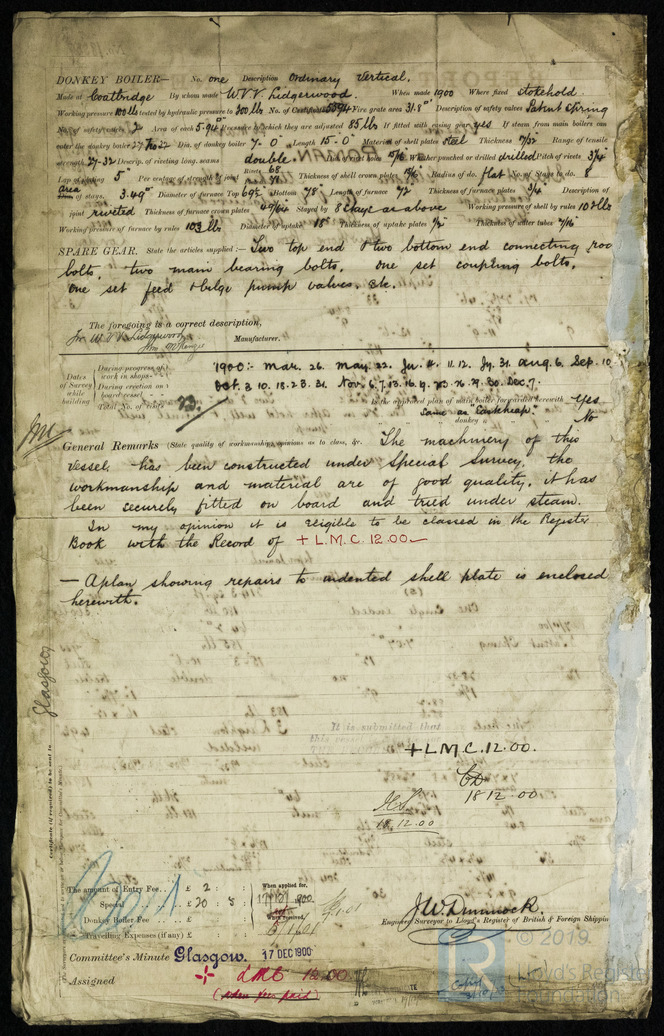 DONKEY BOILER— No. one Description Ordinary Vertical.
Made at Coatbridge By whom made W.V.V. Lidgerwood. When made 1900 Where fixed stokehold
Working pressure 100 lbs tested by hydraulic pressure to 200 lbs No. of Certificate Fire grate area 31.8 Description of safety valves Patent Spring
No. of safety valves 2 Area of each 5.94 Pressure to which they are adjusted 85 lbs If fitted with easing gear yes If steam from main boilers can
enter the donkey boiler Dia. of donkey boiler 7-0" Length 15-0" Material of shell plates steel Thickness Range of tensile
strength 27-32 Descrip. of riveting long. seams double. Whether punched or drilled drilled Pitch of rivets 3/4
Lap of 5" Per centage of strength of joint Rivets 68 Thickness of shell crown plates Radius of do. flat No. of Stays to do. 8
area of stays. 3.49 Diameter of furnace Top 69½ Bottom 78" Length of furnace 72 Thickness of furnace plates 3/4 Description of
joint riveted Thickness of furnace crown plates 49/64 Stayed by 8 stays as above Working pressure of shell by rules 102 lbs
Working pressure of furnace by rules 103 lbs Diameter of uptake 15" Thickness of uptake plates ½ Thickness of water tubes 7/16
SPARE GEAR. State the articles supplied:— Two top end & two bottom end connecting rod
bolts, two main bearing bolts, one set coupling bolts,
one set feed & bilge pump valves. &c.
The foregoing is a correct description,
for W.V.V. Lidgerwood Manufacturer.
John McKenzie
Dates of Survey while building
During progress of work in shops- 1900:- Mar. 26. May. 22. Ju. 4. 11. 12. Jy. 31. Aug. 6. Sep. 10
During erection on board vessel- Oct. 3. 10. 18. 23. 31. Nov. 6. 7. 13. 16. 19. 23. 26. 29. 30. Dec. 7.
Total No. of visits 23. Is the approved plan of main boiler forwarded herewith Yes
Same as "Eastheap."
donkey " " " No
General Remarks (State quality of workmanship, opinions as to class, &c. The machinery of this
vessel has been constructed under Special Survey, the
workmanship and material are of good quality, it has
been securely fitted on board and tried under steam.
In my opinion it is eligible to be classed in the Register
Book with the Record of + L.M.C. 12.00
— A plan showing repairs to indented shell plate is enclosed
herewith.
Glasgow
Certificate (if required) to be sent to
It is submitted that
+ L.M.C. 12.00.
18 12.00
18.12.00
The amount of Entry Fee.. £ 2 : : When applied for,
Special £ 20 : 8 : 1900
Donkey Boiler Fee £ : : When received,
Travelling Expenses (if any) £ : :
J.W. Dimmock.
Engineer Surveyor to Lloyd's Register of British & Foreign Shipping
Committee's Minute Glasgow. 17 DEC 1900
Assigned + LMC 12.00
(when fee paid)
© 2019
Lloyd's Register
Foundation